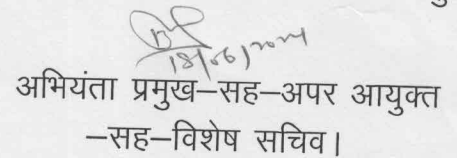 18/06/2024
अभियंता प्रमुख–सह–अपर आयुक्त
–सह–विशेष सचिव।